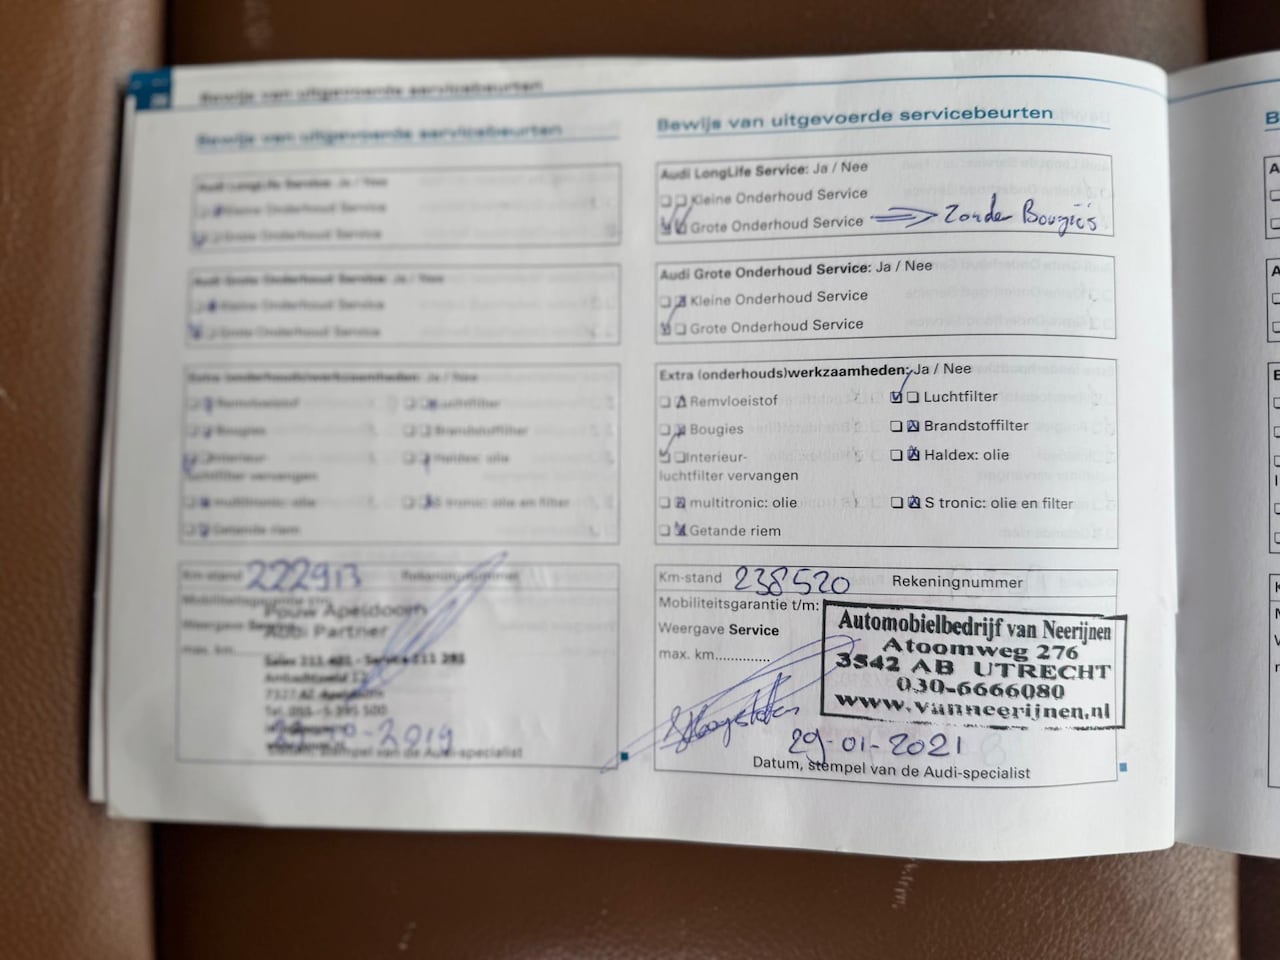 Bewijs van uitgevoerde servicebeurten
Bewijs van uitgevoerde servicebeurten
Audi LongLife Service: Ja / Nee
Kleine Onderhoud Service
Grote Onderhoud Service
Audi Grote Onderhoud Service: Ja / Nee
Kleine Onderhoud Service
Grote Onderhoud Service
Extra (onderhouds)werkzaamheden: Ja / Nee
Remvloeistof Luchtfilter
Bougies Brandstoffilter
Interieur- Haldex: olie
luchtfilter vervangen
multitronic: olie S tronic: olie en filter
Getande riem
Km-stand 222913 Rekeningnummer
Mobiliteitsgarantie t/m:
Pouw Apeldoorn
Weergave Service
Audi Partner
max. km
2019
Datum, stempel van de Audi-specialist
Bewijs van uitgevoerde servicebeurten
Audi LongLife Service: Ja / Nee
Kleine Onderhoud Service
Grote Onderhoud Service => Zonder Bougiës
Audi Grote Onderhoud Service: Ja / Nee
Kleine Onderhoud Service
Grote Onderhoud Service
Extra (onderhouds)werkzaamheden: Ja / Nee
Remvloeistof Luchtfilter
Bougies Brandstoffilter
Interieur- Haldex: olie
luchtfilter vervangen
multitronic: olie S tronic: olie en filter
Getande riem
Km-stand 238520 Rekeningnummer
Mobiliteitsgarantie t/m:
Weergave Service
max. km..............
Automobielbedrijf van Neerijnen
Atoomweg 276
3542 AB UTRECHT
030-6666080
www.vanneerijnen.nl
29-01-2021
Datum, stempel van de Audi-specialist